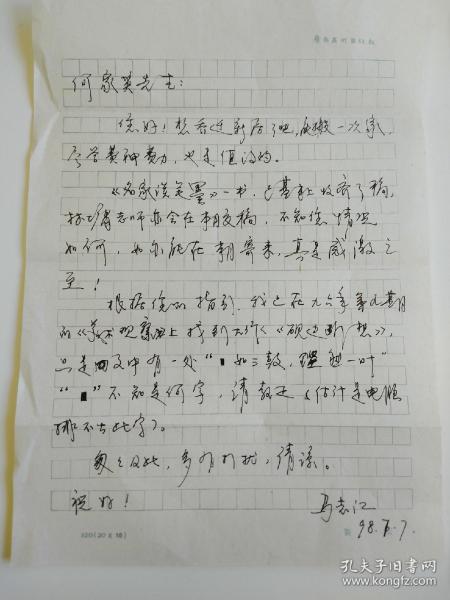 何家英先生:
您好!想看迁新居了吧,搬一次家,
尽管费神费力,也是值得的。
《名家谈笔墨》一书,已基本收齐了稿,
老师亦会在月底交稿,不知您情况
如何,如能在期寄来,真是感激之
至!
根据您的指引,我已在九六年第九期
的《美术观察》上找到大作《砚边断想》,
只是因文中有一处“▮如三鼓,理一叶”
“▮”不知是何字,请教正(估计是电脑
排不出此字)。
匆匆及此,多有打扰,请谅。
祝好!
马志江
98.7.
320(20×16)
孔夫子旧书网